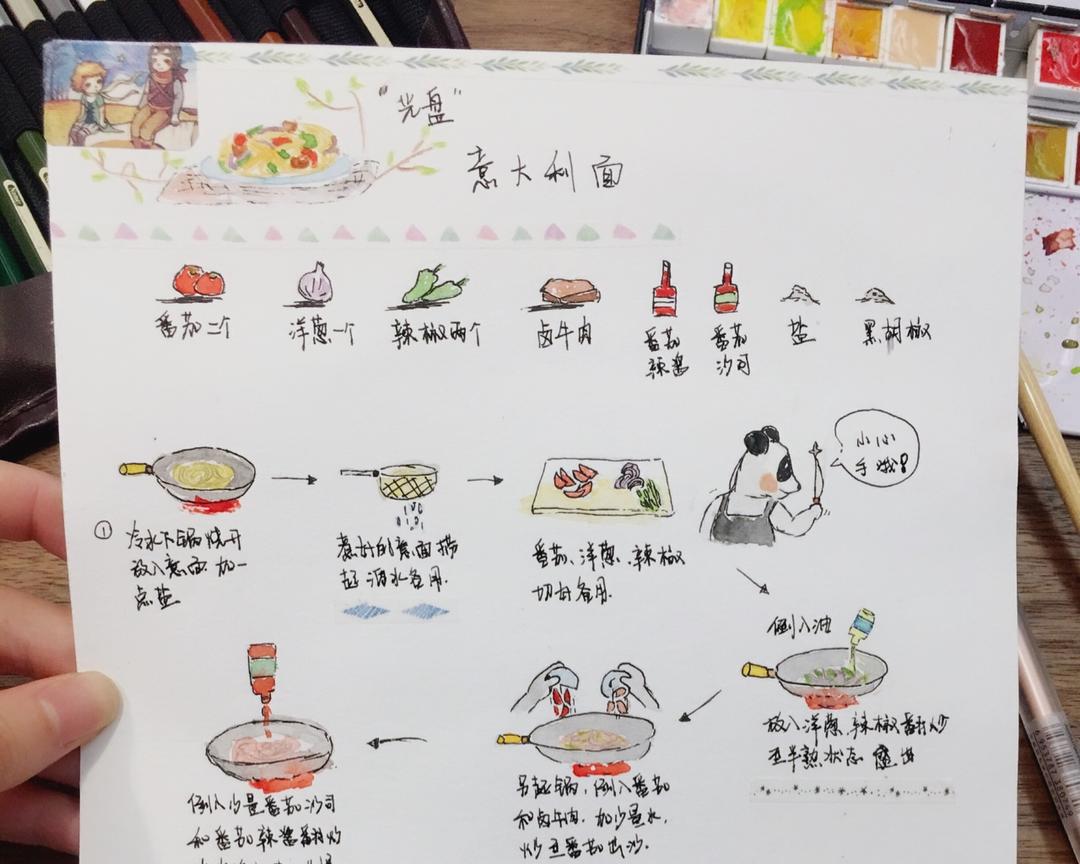 “光盘”
意大利面
番茄二个
洋葱一个
辣椒两个
卤牛肉
番茄
辣酱
番茄
沙司
盐
黑胡椒
①
冷水下锅烧开
放入意面加一
点盐
煮好的意面捞
起 洒水备用.
番茄、洋葱、辣椒
切好备用.
小心
手哦!
倒入油
放入洋葱、辣椒翻炒
至半熟状态盛出
另起锅，倒入番茄
和卤牛肉.加少量水.
炒至番茄出沙.
倒入少量番茄沙司
和番茄辣酱翻炒